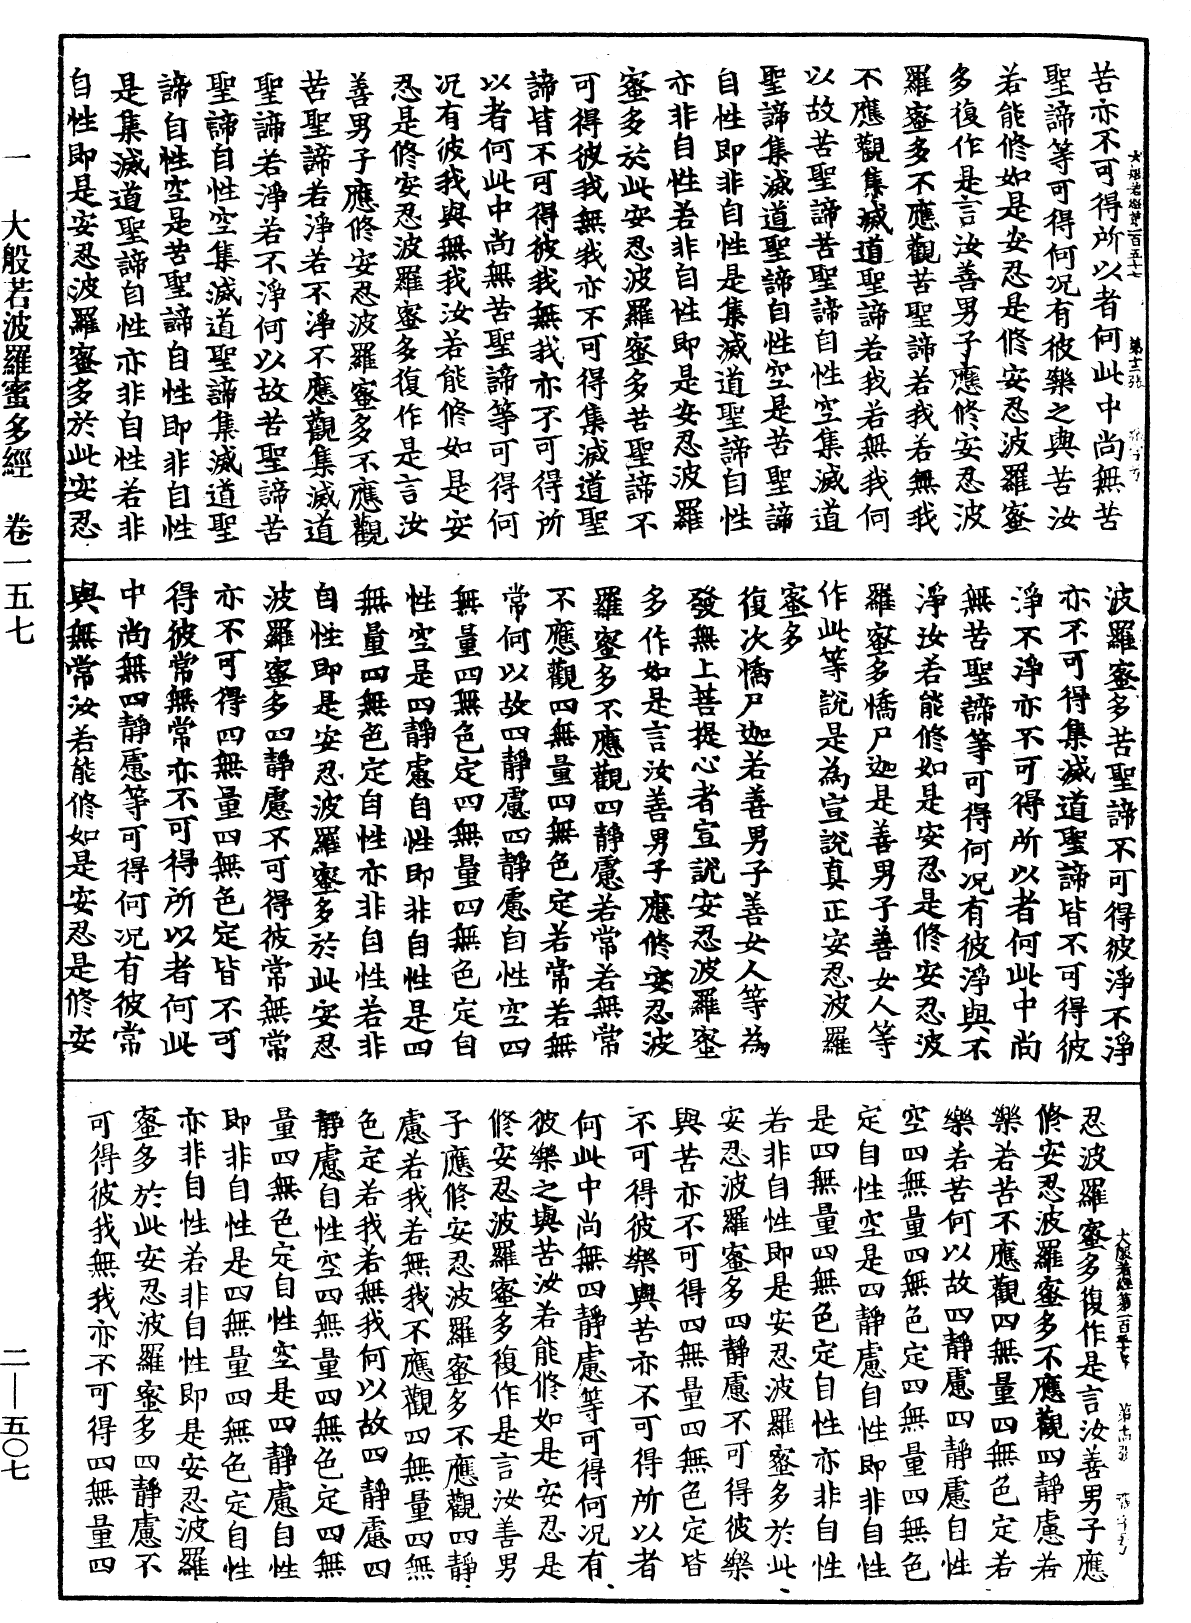 苦亦不可得所以者何此中尚無苦
聖諦等可得何況有彼樂之與苦汝
若能修如是安忍是修安忍波羅蜜
多復作是言汝善男子應修安忍波
羅蜜多不應觀苦聖諦若我若無我
不應觀集滅道聖諦若我若無我何
以故苦聖諦苦聖諦自性空集滅道
聖諦集滅道聖諦自性空是苦聖諦
自性即非自性是集滅道聖諦自性
亦非自性若非自性即是安忍波羅
蜜多於此安忍波羅蜜多苦聖諦不
可得彼我無我亦不可得集滅道聖
諦皆不可得彼我無我亦不可得所
以者何此中尚無苦聖諦等可得何
況有彼我與無我汝若能修如是安
忍是修安忍波羅蜜多復作是言汝
善男子應修安忍波羅蜜多不應觀
苦聖諦若淨若不淨不應觀集滅道
聖諦若淨若不淨何以故苦聖諦苦
聖諦自性空集滅道聖諦集滅道聖
諦自性空是苦聖諦自性即非自性
是集滅道聖諦自性亦非自性若非
自性即是安忍波羅蜜多於此安忍
波羅蜜多苦聖諦不可得彼淨不淨
亦不可得集滅道聖諦皆不可得彼
淨不淨亦不可得所以者何此中尚
無苦聖諦等可得何況有彼淨與不
淨汝若能修如是安忍是修安忍波
羅蜜多憍尸迦是善男子善女人等
作此等說是為宣說真正安忍波羅
蜜多
復次憍尸迦若善男子善女人等為
發無上菩提心者宣說安忍波羅蜜
多作如是言汝善男子應修安忍波
羅蜜多不應觀四靜慮若常若無常
不應觀四無量四無色定若常若無
常何以故四靜慮四靜慮自性空四
無量四無色定四無量四無色定自
性空是四靜慮自性即非自性是四
無量四無色定自性亦非自性若非
自性即是安忍波羅蜜多於此安忍
波羅蜜多四靜慮不可得彼常無常
亦不可得四無量四無色定皆不可
得彼常無常亦不可得所以者何此
中尚無四靜慮等可得何況有彼常
與無常汝若能修如是安忍是修安
忍波羅蜜多復作是言汝善男子應
修安忍波羅蜜多不應觀四靜慮若
樂若苦不應觀四無量四無色定若
樂若苦何以故四靜慮四靜慮自性
空四無量四無色定四無量四無色
定自性空是四靜慮自性即非自性
是四無量四無色定自性亦非自性
若非自性即是安忍波羅蜜多於此
安忍波羅蜜多四靜慮不可得彼樂
與苦亦不可得四無量四無色定皆
不可得彼樂與苦亦不可得所以者
何此中尚無四靜慮等可得何況有
彼樂之與苦汝若能修如是安忍是
修安忍波羅蜜多復作是言汝善男
子應修安忍波羅蜜多不應觀四靜
慮若我若無我不應觀四無量四無
色定若我若無我何以故四靜慮四
靜慮自性空四無量四無色定四無
量四無色定自性空是四靜慮自性
即非自性是四無量四無色定自性
亦非自性若非自性即是安忍波羅
蜜多於此安忍波羅蜜多四靜慮不
可得彼我無我亦不可得四無量四
大般若經第一百五十七
一 大般若波羅蜜多經 卷一五七
二—五〇七